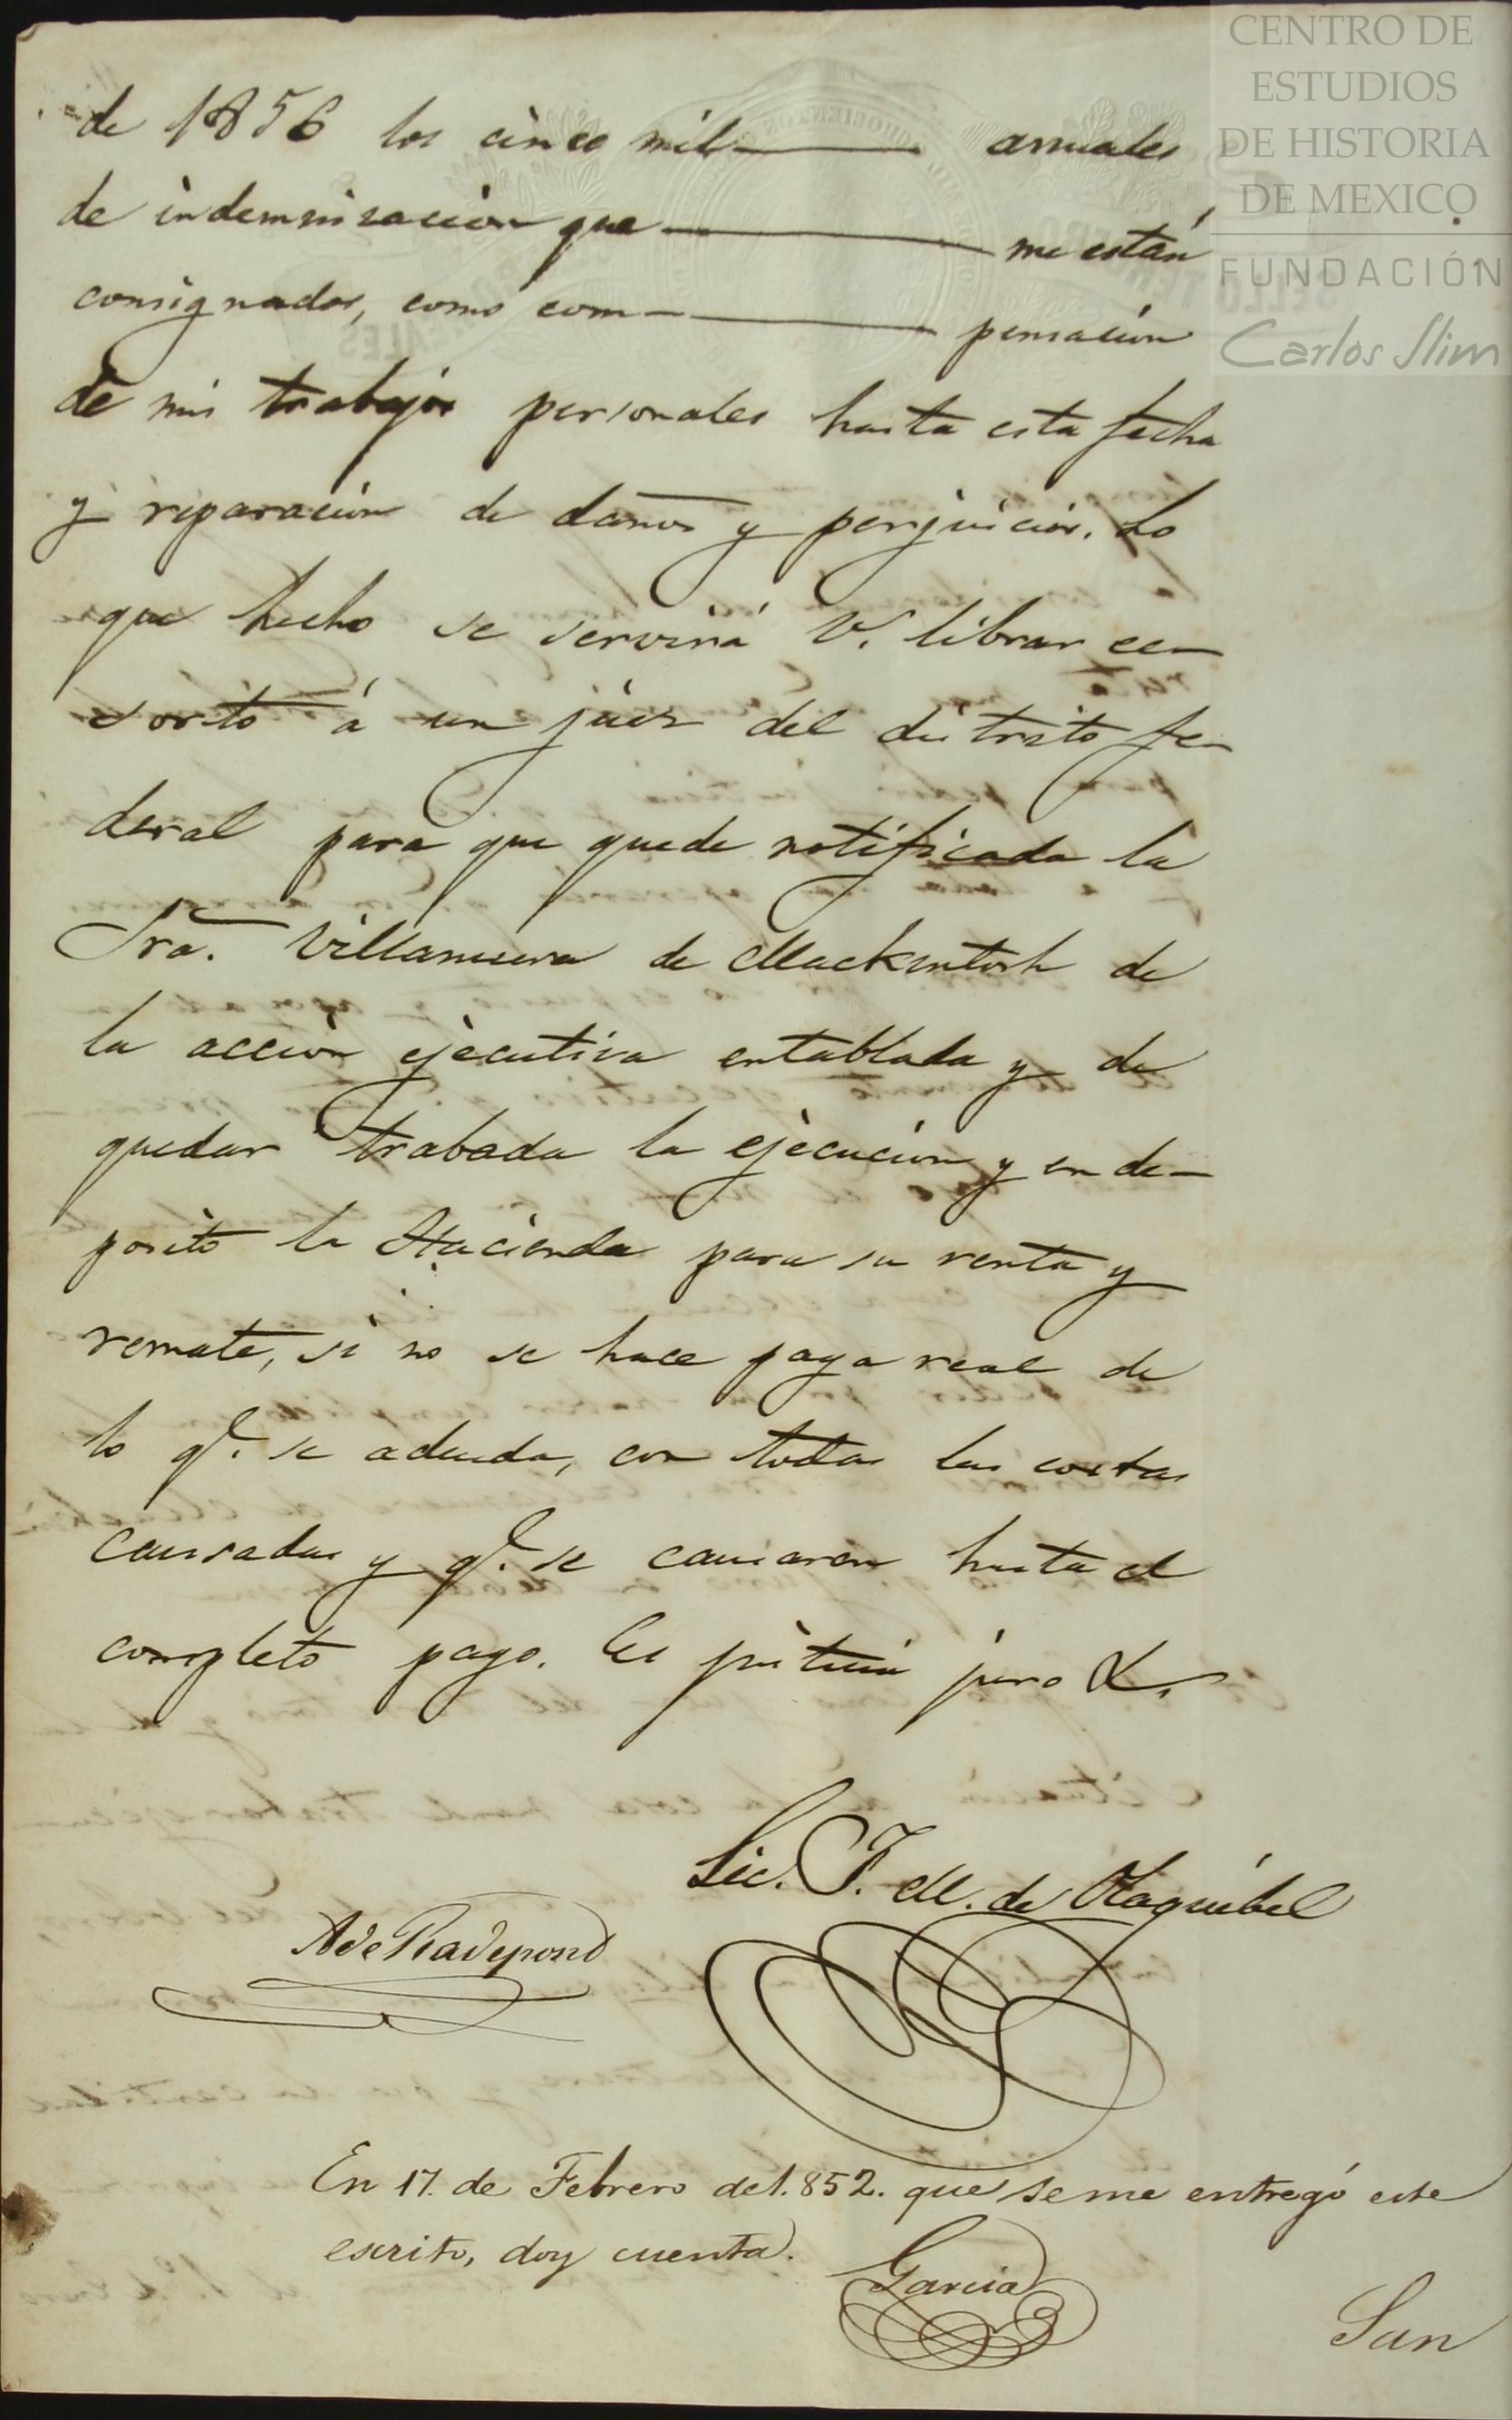 CENTRO DE
ESTUDIOS
DE HISTORIA
DE MEXICO
FUNDACIÓN
Carlos Slim
de 1856 los cinco mil anuales
de indemnisacion que me están
consignados, como com- pensación
de mis trabajos personales hasta esta fecha
y reparación de daños y perjuicios. Lo
que hecho se servirá V. librar ec-
sorto á un juez del distrito fe-
deral para que quede notificada la
Sra. Villanueva de Mackintosh de
la acción ejecutiva entablada y de
quedar trabada la ejecución y en de-
posito la Hacienda para su venta y
remate, si no se hace paga real de
lo q.e se adeuda, con todas las costas
causadas y q.e se causaren hasta el
completo pago. Es justicia juro &.
Lic. F. M. de Olaguibel
A de Radepont
En 17. de Febrero de 1.852. que se me entregó este
escrito, doy cuenta.
Garcia
San